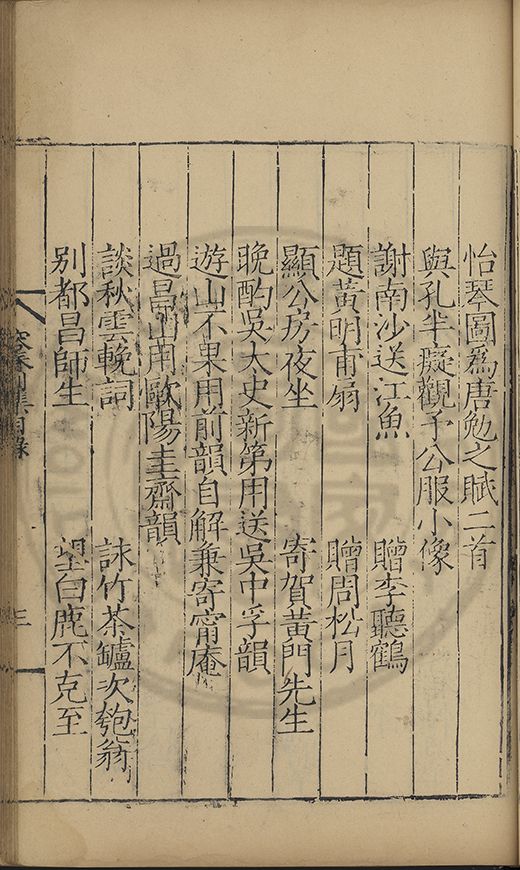 怡琴圖爲唐勉之賦二首
與孔半癡觀予公服小像
謝南沙送江魚 贈李聽鶴
題黃明甫扇 贈周松月
顯公房夜坐 寄賀黃門先生
晚酌吳大史新第用送吳中孚韻
遊山不果用前韻自解兼寄甯庵
過昌山用歐陽圭齋韻
談秋雲輓詞 詠竹茶罏次匏翁
別都昌師生 望白鹿不克至
集目錄
三